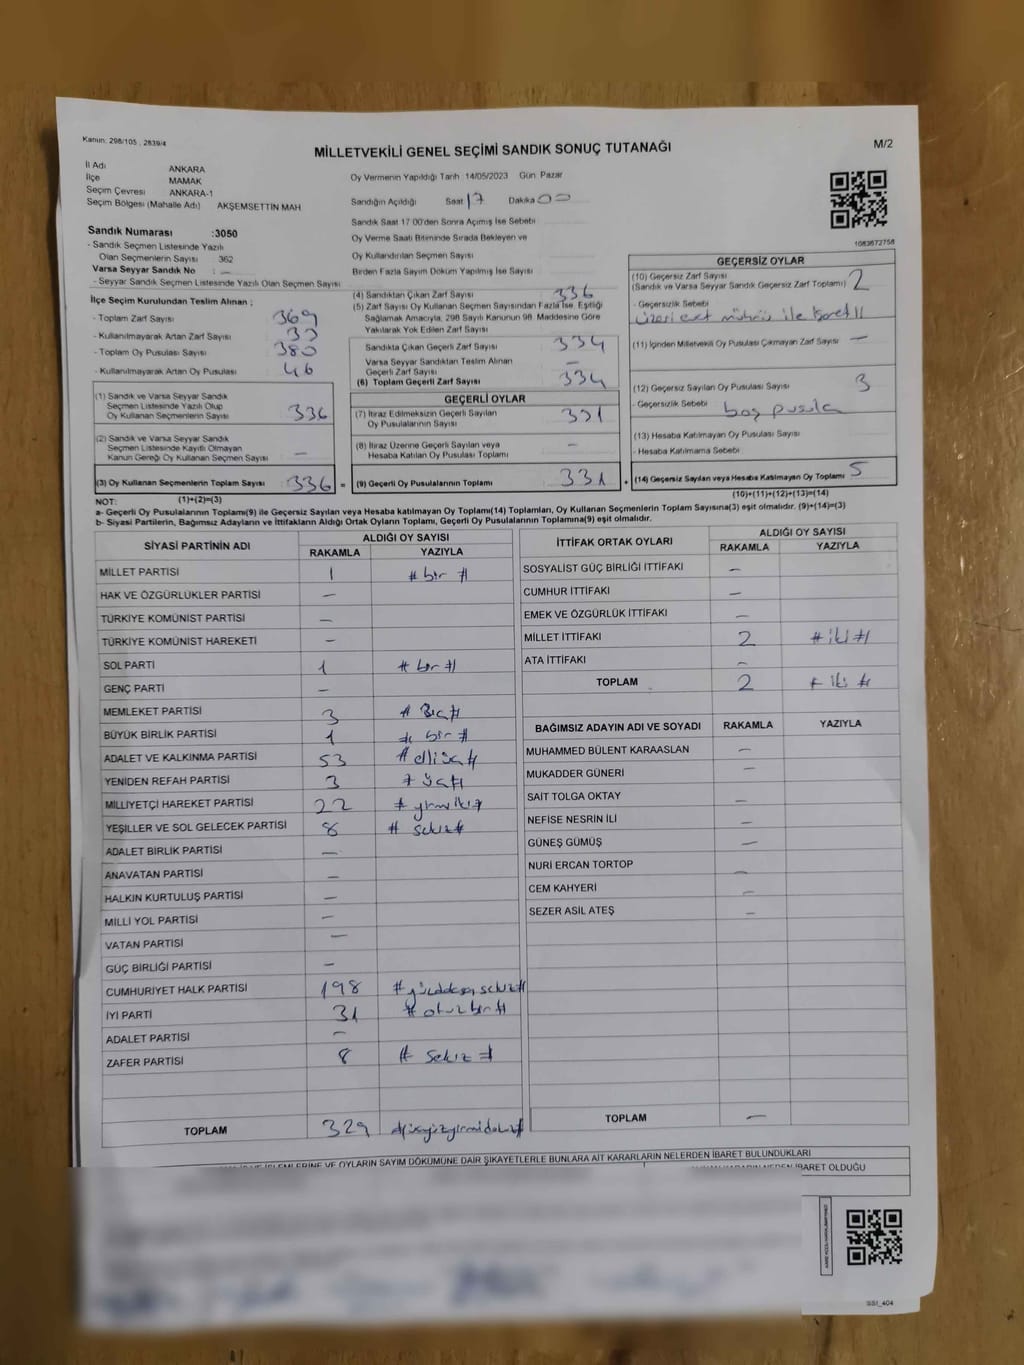 Kanun: 298/105 , 2839/4
MİLLETVEKİLİ GENEL SEÇİMİ SANDIK SONUÇ TUTANAĞI
M/2
İl Adı ANKARA
İlçe MAMAK
Seçim Çevresi ANKARA-1
Seçim Bölgesi (Mahalle Adı) AKŞEMSETTİN MAH
Oy Vermenin Yapıldığı Tarih :14/05/2023 Gün Pazar
Sandığın Açıldığı Saat 17 Dakika 00
Sandık Saat 17:00'den Sonra Açılmış İse Sebebi
Oy Verme Saati Bitiminde Sırada Bekleyen ve
Oy Kullandırılan Seçmen Sayısı
Birden Fazla Sayım Döküm Yapılmış İse Sayısı
1083872758
Sandık Numarası :3050
- Sandık Seçmen Listesinde Yazılı
Olan Seçmenlerin Sayısı 362
Varsa Seyyar Sandık No : —
- Seyyar Sandık Seçmen Listesinde Yazılı Olan Seçmen Sayısı
İlçe Seçim Kurulundan Teslim Alınan ;
- Toplam Zarf Sayısı 369
- Kullanılmayarak Artan Zarf Sayısı 33
- Toplam Oy Pusulası Sayısı 380
- Kullanılmayarak Artan Oy Pusulası 46
(1) Sandık ve Varsa Seyyar Sandık
Seçmen Listesinde Yazılı Olup
Oy Kullanan Seçmenlerin Sayısı 336
(2) Sandık ve Varsa Seyyar Sandık
Seçmen Listesinde Kayıtlı Olmayan
Kanun Gereği Oy Kullanan Seçmen Sayısı —
(3) Oy Kullanan Seçmenlerin Toplam Sayısı 336 =
(4) Sandıktan Çıkan Zarf Sayısı 336
(5) Zarf Sayısı Oy Kullanan Seçmen Sayısından Fazla İse, Eşitliği
Sağlamak Amacıyla, 298 Sayılı Kanunun 98. Maddesine Göre
Yakılarak Yok Edilen Zarf Sayısı
Sandıkta Çıkan Geçerli Zarf Sayısı 334
Varsa Seyyar Sandıktan Teslim Alınan
Geçerli Zarf Sayısı —
(6) Toplam Geçerli Zarf Sayısı 334
GEÇERLİ OYLAR
(7) İtiraz Edilmeksizin Geçerli Sayılan
Oy Pusulalarının Sayısı 331
(8) İtiraz Üzerine Geçerli Sayılan veya
Hesaba Katılan Oy Pusulası Toplamı —
(9) Geçerli Oy Pusulalarının Toplamı 331 +
GEÇERSİZ OYLAR
(10) Geçersiz Zarf Sayısı 2
(Sandık ve Varsa Seyyar Sandık Geçersiz Zarf Toplamı)
- Geçersizlik Sebebi
üzeri evet mührü ile işaretli
(11) İçinden Milletvekili Oy Pusulası Çıkmayan Zarf Sayısı —
(12) Geçersiz Sayılan Oy Pusulası Sayısı 3
- Geçersizlik Sebebi boş pusula
(13) Hesaba Katılmayan Oy Pusulası Sayısı
- Hesaba Katılmama Sebebi
(14) Geçersiz Sayılan veya Hesaba Katılmayan Oy Toplamı 5
NOT: (1)+(2)=(3)
(10)+(11)+(12)+(13)=(14)
a- Geçerli Oy Pusulalarının Toplamı(9) ile Geçersiz Sayılan veya Hesaba katılmayan Oy Toplamı(14) Toplamları, Oy Kullanan Seçmenlerin Toplam Sayısına(3) eşit olmalıdır. (9)+(14)=(3)
b- Siyasi Partilerin, Bağımsız Adayların ve İttifakların Aldığı Ortak Oyların Toplamı, Geçerli Oy Pusulalarının Toplamına(9) eşit olmalıdır.
SİYASİ PARTİNİN ADI ALDIĞI OY SAYISI
RAKAMLA YAZIYLA
MİLLET PARTİSİ 1 # bir #
HAK VE ÖZGÜRLÜKLER PARTİSİ —
TÜRKİYE KOMÜNİST PARTİSİ —
TÜRKİYE KOMÜNİST HAREKETİ —
SOL PARTİ 1 # bir #
GENÇ PARTİ —
MEMLEKET PARTİSİ 3 # üç #
BÜYÜK BİRLİK PARTİSİ 1 # bir #
ADALET VE KALKINMA PARTİSİ 53 # elli üç #
YENİDEN REFAH PARTİSİ 3 # üç #
MİLLİYETÇİ HAREKET PARTİSİ 22 # yirmi iki #
YEŞİLLER VE SOL GELECEK PARTİSİ 8 # sekiz #
ADALET BİRLİK PARTİSİ —
ANAVATAN PARTİSİ —
HALKIN KURTULUŞ PARTİSİ —
MİLLİ YOL PARTİSİ —
VATAN PARTİSİ —
GÜÇ BİRLİĞİ PARTİSİ —
CUMHURİYET HALK PARTİSİ 198 # yüzdoksansekiz #
İYİ PARTİ 31 # otuz bir #
ADALET PARTİSİ —
ZAFER PARTİSİ 8 # sekiz #
TOPLAM 329 # üçyüzyirmidokuz #
İTTİFAK ORTAK OYLARI ALDIĞI OY SAYISI
RAKAMLA YAZIYLA
SOSYALİST GÜÇ BİRLİĞİ İTTİFAKI —
CUMHUR İTTİFAKI —
EMEK VE ÖZGÜRLÜK İTTİFAKI —
MİLLET İTTİFAKI 2 # iki #
ATA İTTİFAKI —
TOPLAM 2 # iki #
BAĞIMSIZ ADAYIN ADI VE SOYADI RAKAMLA YAZIYLA
MUHAMMED BÜLENT KARAASLAN —
MUKADDER GÜNERİ —
SAİT TOLGA OKTAY —
NEFİSE NESRİN İLİ —
GÜNEŞ GÜMÜŞ —
NURİ ERCAN TORTOP —
CEM KAHYERİ —
SEZER ASİL ATEŞ —
TOPLAM —
İŞLEMLERİNE VE OYLARIN SAYIM DÖKÜMÜNE DAİR ŞİKAYETLERLE BUNLARA AİT KARARLARIN NELERDEN İBARET BULUNDUKLARI
İBARET OLDUĞU
SSI_404